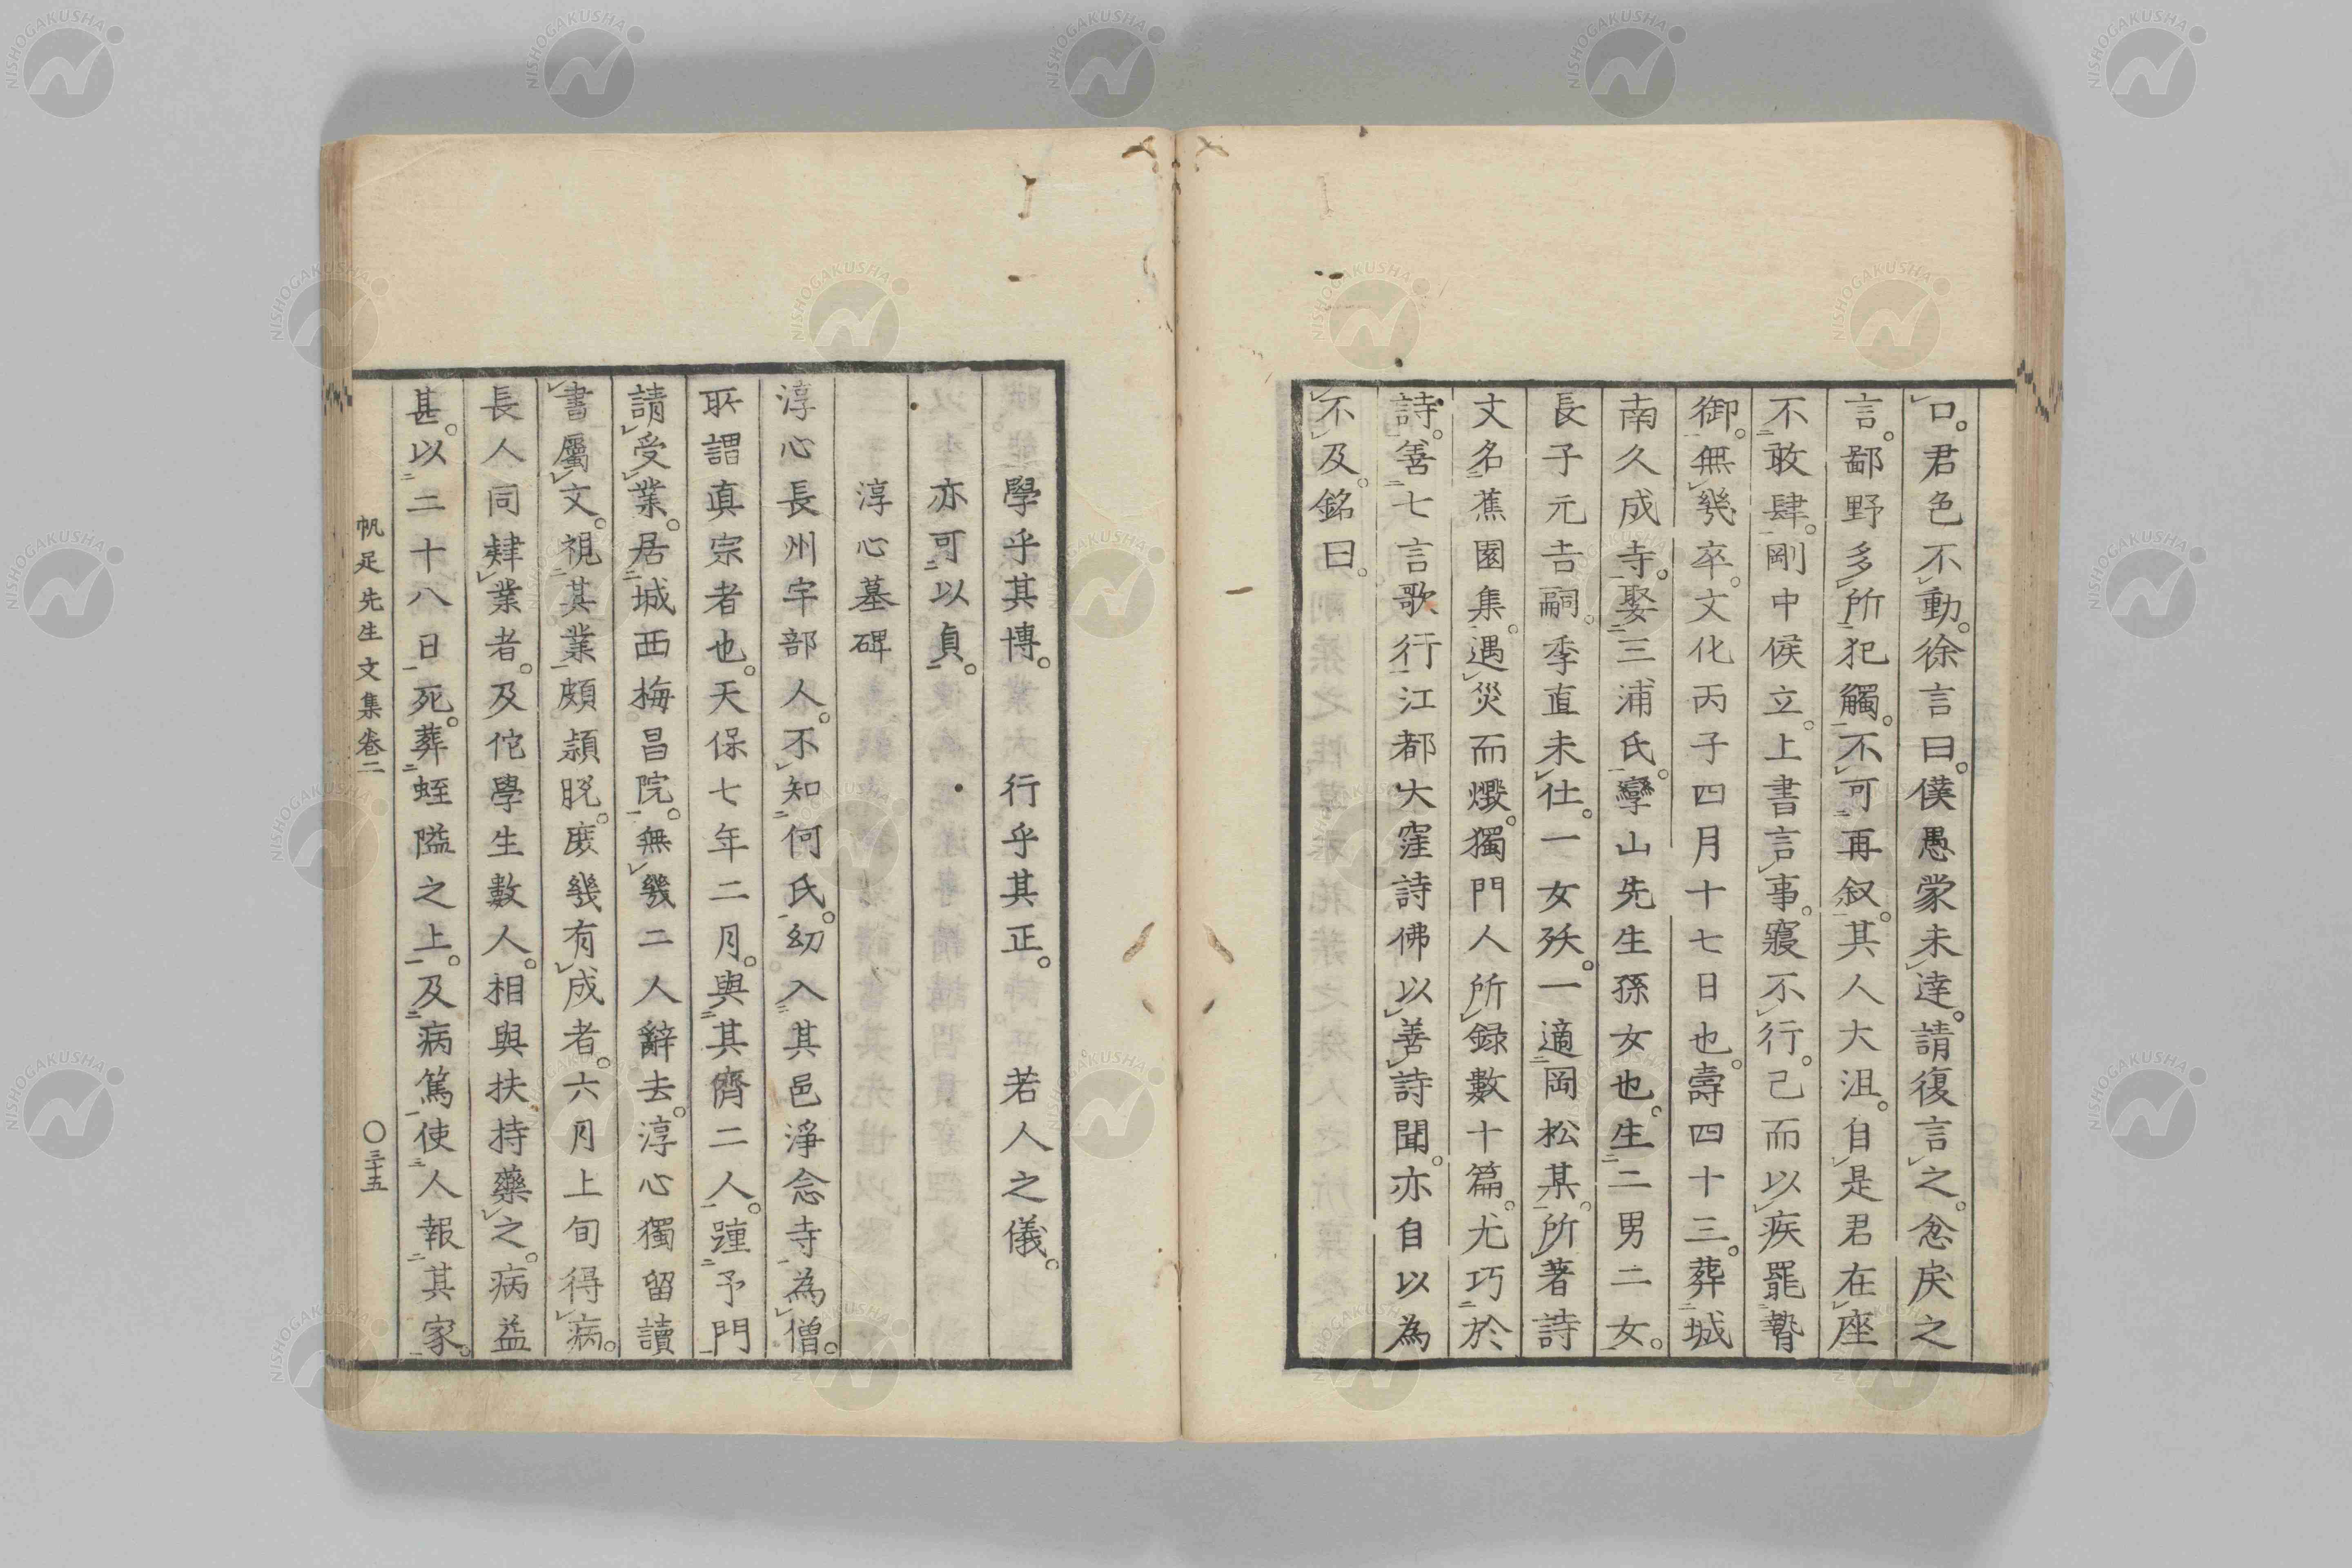 口。君色不動。徐言曰。僕愚蒙未達。請復言之。忿戾之
言。鄙野多所犯觸。不可再叙。其人大沮。自是君在座
不敢肆。剛中侯立。上書言事。寢不行。己而以疾罷
御。無幾卒。文化丙子四月十七日也。壽四十三。葬城
南久成寺。娶三浦氏。巒山先生孫女也。生二男二女。
長子元吉嗣。季直未仕。一女殀。一適岡松某。所著詩
文名蕉園集。遇災而燬。獨門人所録數十篇。尤巧於
詩。善七言歌行。江都大窪詩佛以善詩聞。亦自以為
不及。銘曰。
學乎其博。 行乎其正。 若人之儀。
亦可以貞。
淳心墓碑
淳心長州宇部人。不知何氏。幼入其邑淨念寺為僧。
所謂真宗者也。天保七年二月。與其儕二人。踵予門
請受業。居城西梅昌院。無幾二人辭去。淳心獨留讀
書屬文。視其業頗穎脱。庶幾有成者。六月上旬得病。
長人同肄業者。及佗學生數人。相與扶持藥之。病益
甚。以二十八日死。葬蛭隘之上。及病篤使人報其家。
帆足先生文集卷二
〇三十五
NISHOGAKUSHA